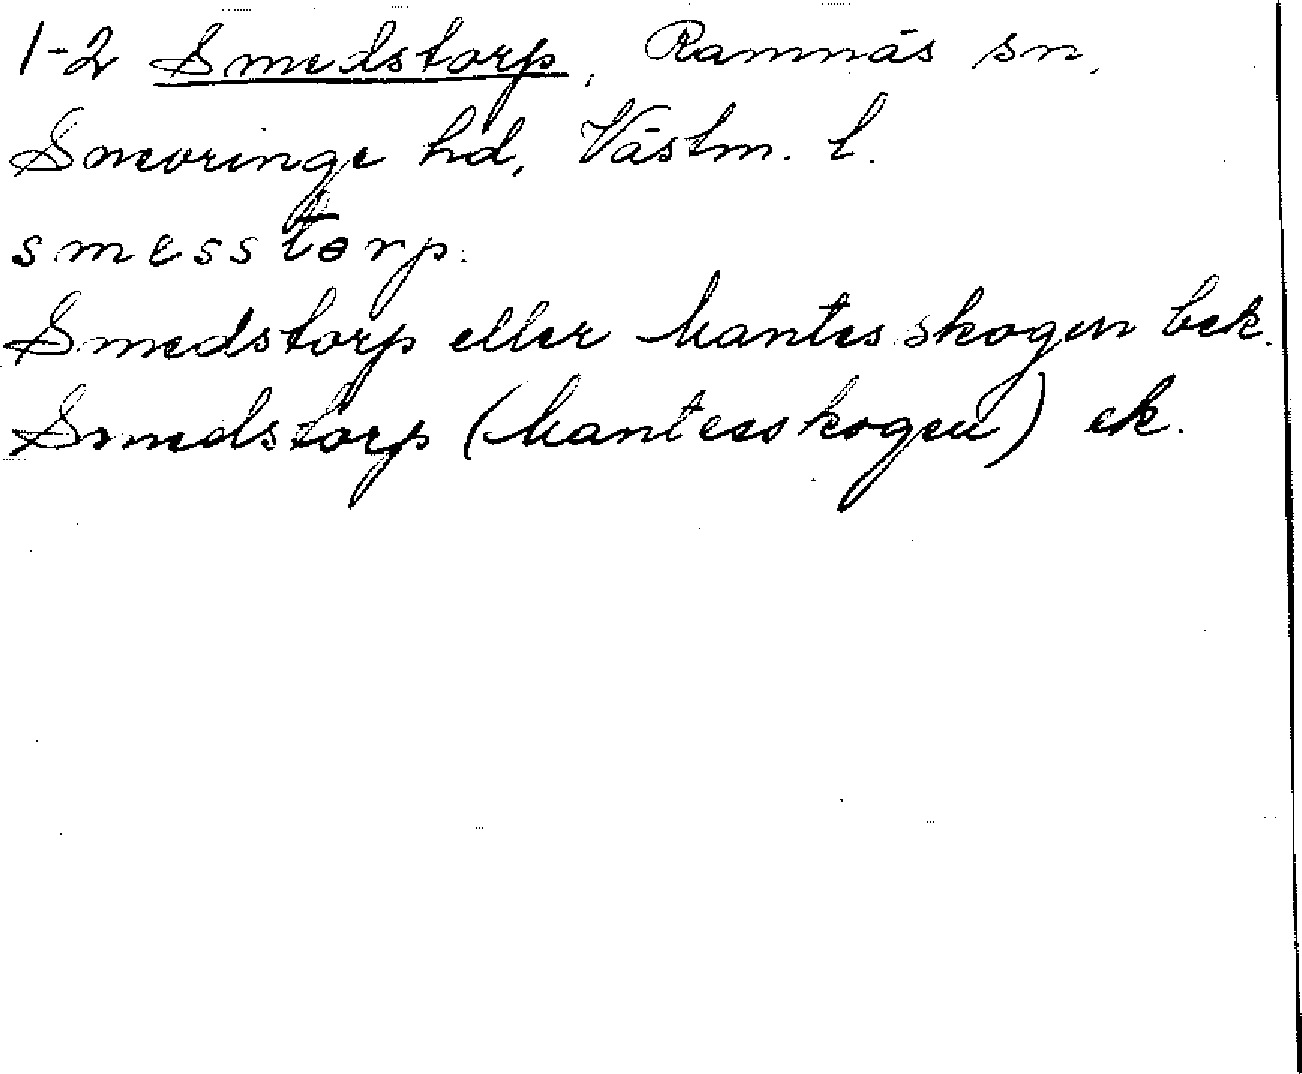 1-2 Smedstorp, Ramnäs sn,
Snevringe hd, Västm. l.
smesstorp.
Smedstorp eller Mantesskogen bek.
Smedstorp (Mantesskogen) ek.